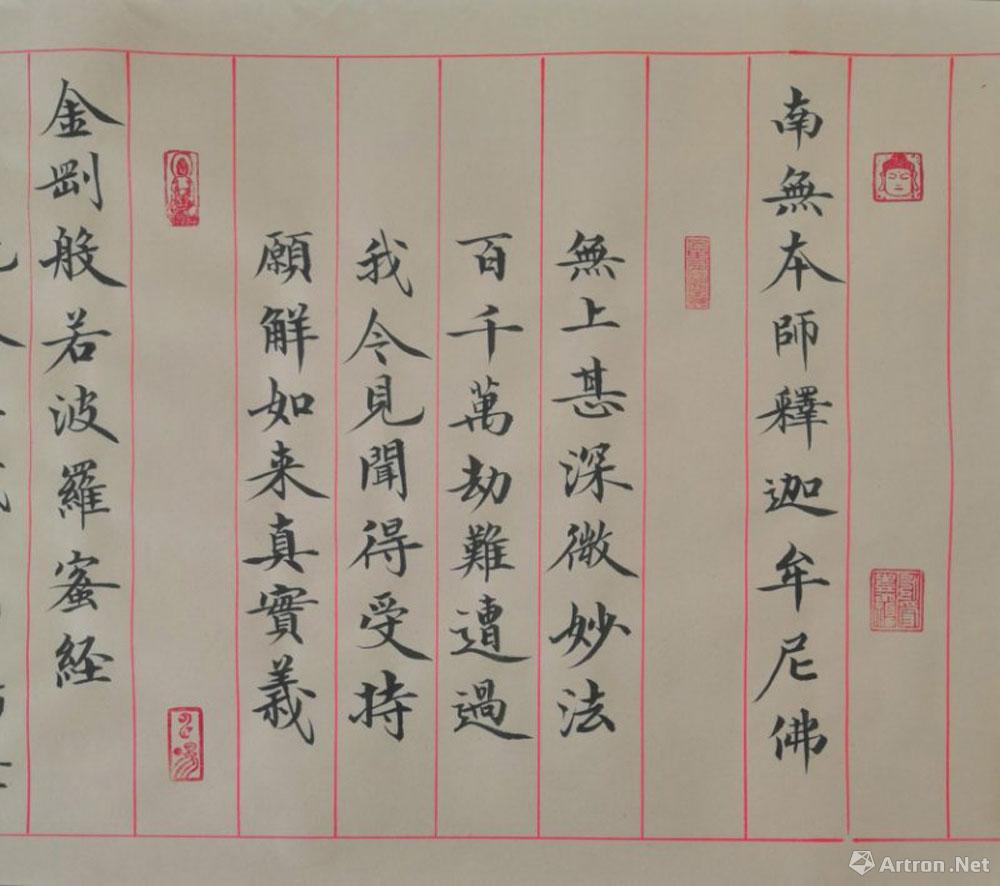 南無本師釋迦牟尼佛
無上甚深微妙法
百千萬劫難遭過
我今見聞得受持
願解如来真實義
金剛般若波羅蜜経
Artron.Net